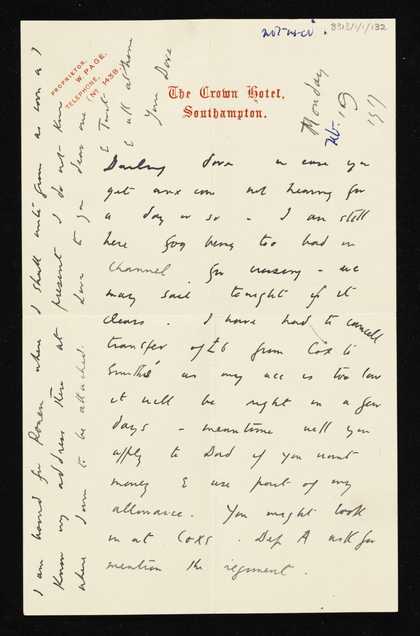 not used
8313/1/1/132
PROPRIETOR,
W. PAGE.
TELEPHONE,
(No 1438.
The Crown Hotel,
Southampton.
Monday
Feb. 19
1917
Darling dove in case you
get anxious not hearing for
a day or so - I am still
here fog being too bad in
Channel for crossing - we
may sail tonight if it
clears. I have had to cancel
transfer of £6 from Cox to
Smiths' as my acc is too low
it will be right in a few
days - meantime will you
apply to Dad if you want
money & use part of my
allowance. You might look
in at Coxs. Dep A ask for
mention the regiment.
I am bound for Rouen where I shall write from as soon as I
know my address there at present I do not know
where I am to be attached. Love to you dear one
& Trust
& all at home
Your Dove